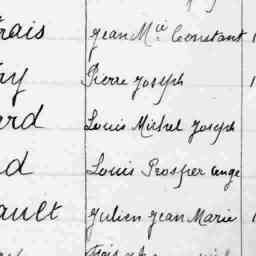 rais Jean Mie Constant 1
ay Pierre Joseph 1
ard Louis Michel Joseph
d Louis Prosper Ange
ault Julien Jean Marie 1